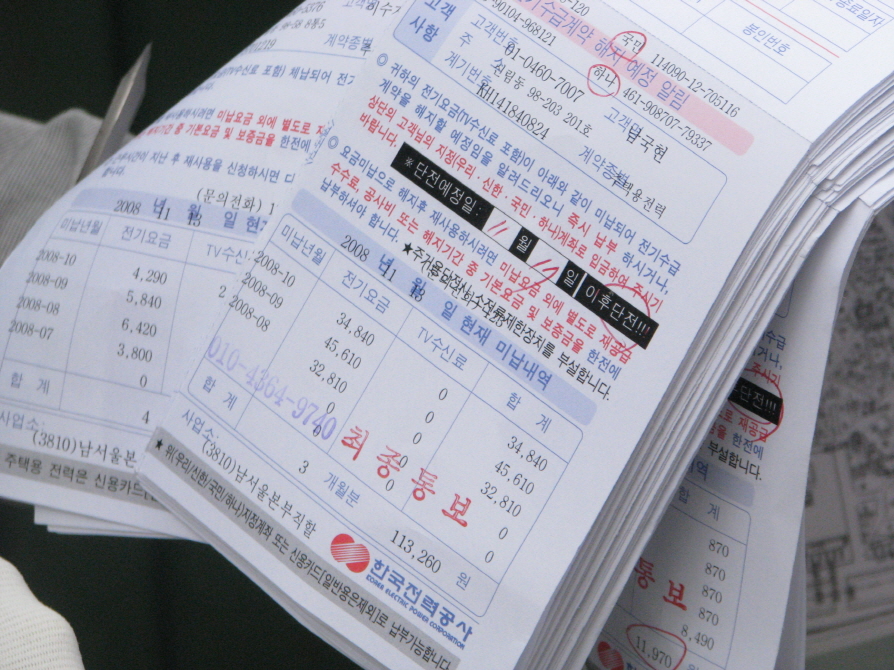 기수급계약 해지 예정 알림
국민 114090-12-705116
하나 461-908707-79337
봉인번호
고객
사항
고객번호 01-0460-7007
주 소 신림동 98-203 201호
계기번호
고객명
계약종별 주택용전력
◎ 귀하의 전기요금(tv수신료 포함)이 아래와 같이 미납되어 전기수급
계약을 해지할 예정임을 알려드리오니 즉시 납부하시거나,
상단의 고객님의 지정(우리·신한·국민·하나)계좌로 입금하여 주시기
바랍니다.
※ 단전예정일: 11 월 일 이후단전!!!
◎ 요금미납으로 해지후 재사용하시려면 미납요금 외에 별도로 재공급
수수료, 공사비 또는 해지기간 중 기본요금 및 보증금을 한전에
납부하셔야 합니다.
2008 년 11 월 13 일 현재 미납내역
미납년월 전기요금 TV수신료 합 계
2008-10 34,840 0 34,840
2008-09 45,610 0 45,610
2008-08 32,810 0 32,810
0 0 0
0 0
010-4364-9740
최종통보
합 계 3 개월분 113,260 원
사업소: (3810)남서울본부직할
한국전력공사
KOREA ELECTRIC POWER CORPORATION
★ 위(우리/신한/국민/하나)지정계좌 또는 신용카드[일반용은제외]로 납부가능합니다.
계약종별
미납요금 외에 별도로
기본요금 및 보증금을 한전에
재사용을 신청하시면
(문의전화)
2008 년 11 월 13 일 현재
미납년월 전기요금 TV수신
2008-10 4,290
2008-09 5,840
2008-08 6,420
2008-07 3,800
0
합 계 4
사업소: (3810)남서울본
주택용 전력은 신용카드
단전!!!
로 재공급
을 한전에
부설합니다.
계
870
870
870
870
8,490
11,970
통보